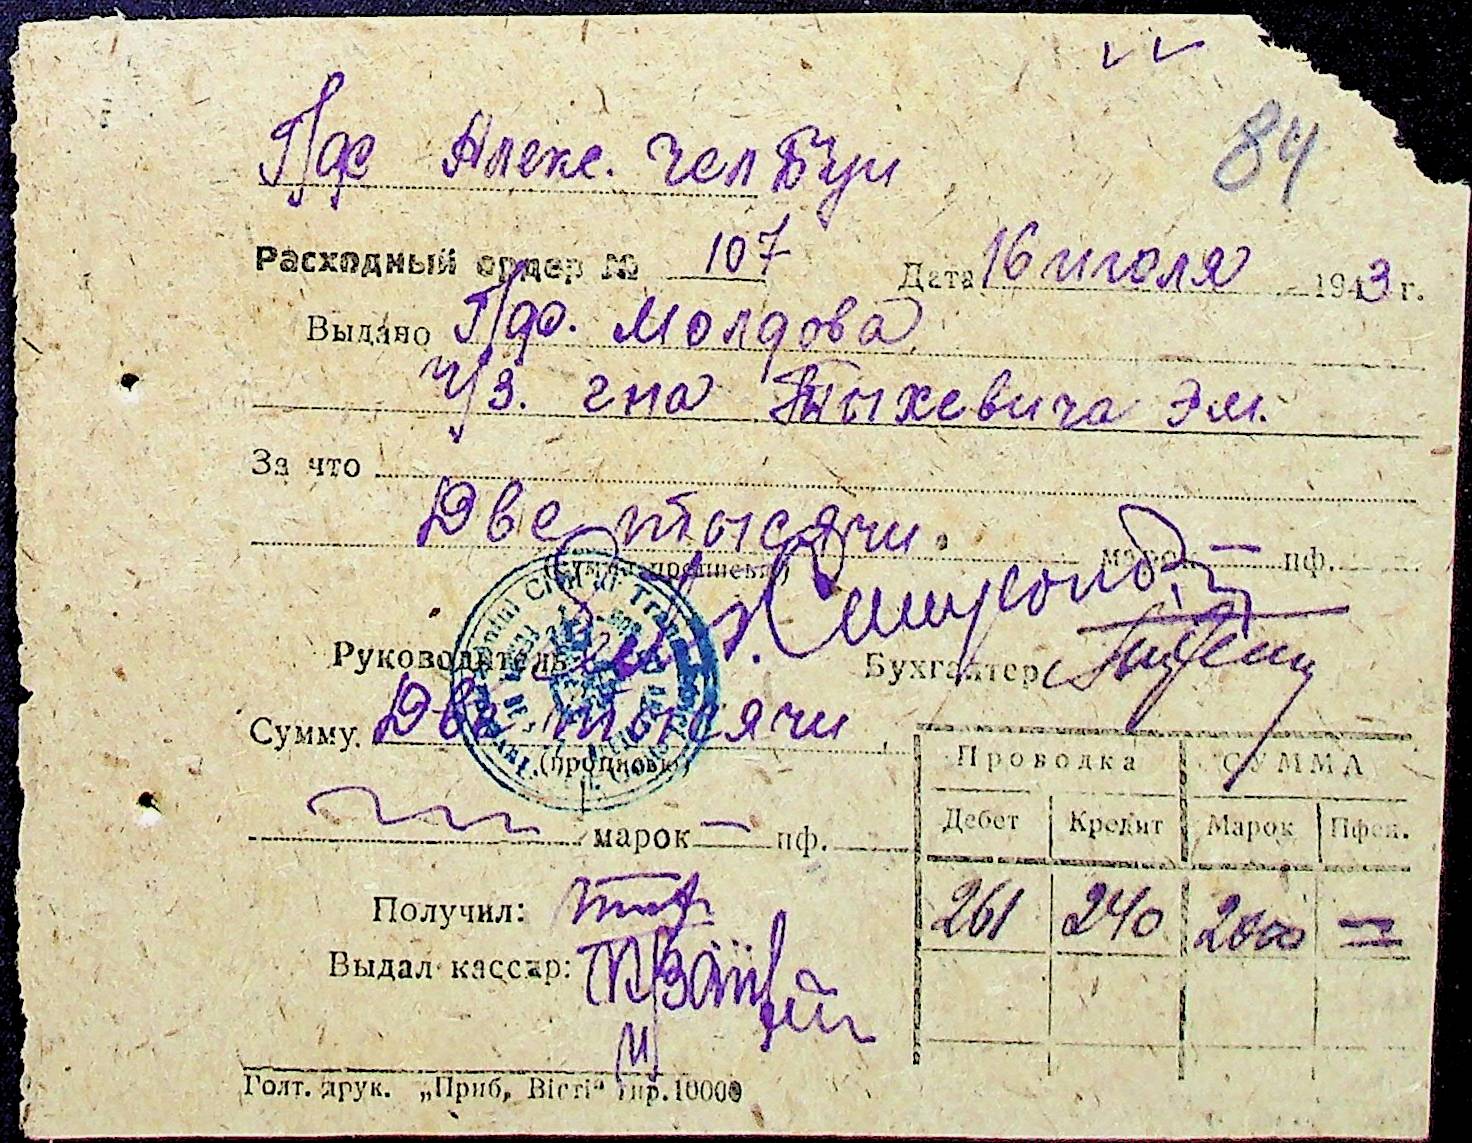 84
Пдф Алекс.
Расходный ордер № 107 Дата 16 июля 1943 г.
Выдано Пдф. Молдова
ч/з. гна Тыхевича Эм.
За что
Две тысячи. марок — пф.
(сумма прописью)
Руководитель Бухгалтер
Сумму Две тысячи
(прописью)
марок — пф.
Проводка СУММА
Дебет Кредит Марок Пфен.
261 240 2000 —
Получил:
Выдал кассир:
Голт. друк. „Приб, Вісті“ тир. 10000